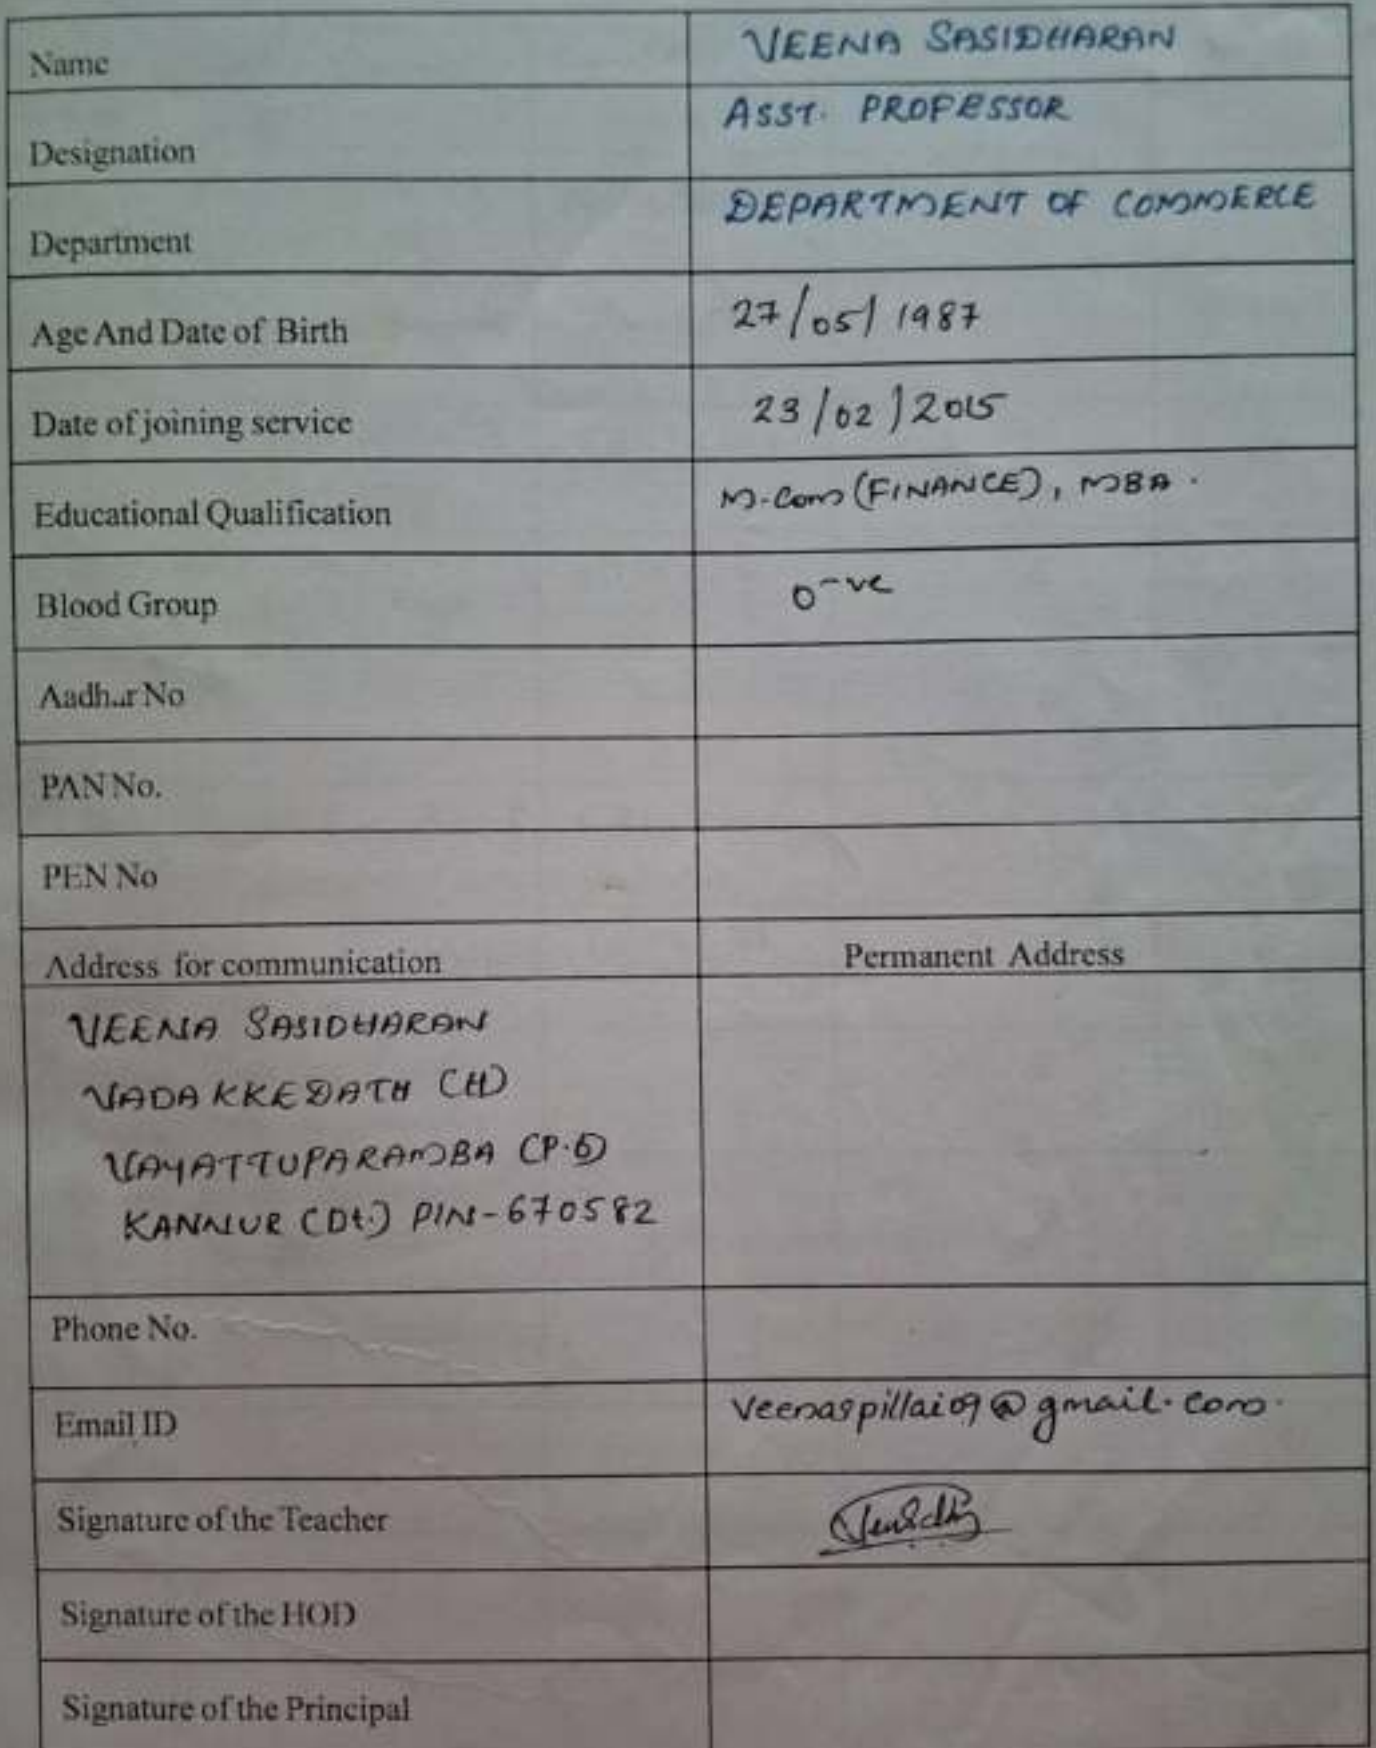 Name VEENA SASIDHARAN
Designation ASST. PROFESSOR
Department DEPARTMENT OF COMMERCE
Age And Date of Birth 27/05/1987
Date of joining service 23/02/2015
Educational Qualification M.Com (FINANCE), MBA.
Blood Group O-ve
Aadhar No
PAN No.
PEN No
Address for communication Permanent Address
VEENA SASIDHARAN
VADAKKEDATH (H)
VAYATTUPARAMBA (P.O)
KANNUR (Dt.) PIN-670582
Phone No.
Email ID veenaspillai09@gmail.com.
Signature of the Teacher
Signature of the HOD
Signature of the Principal